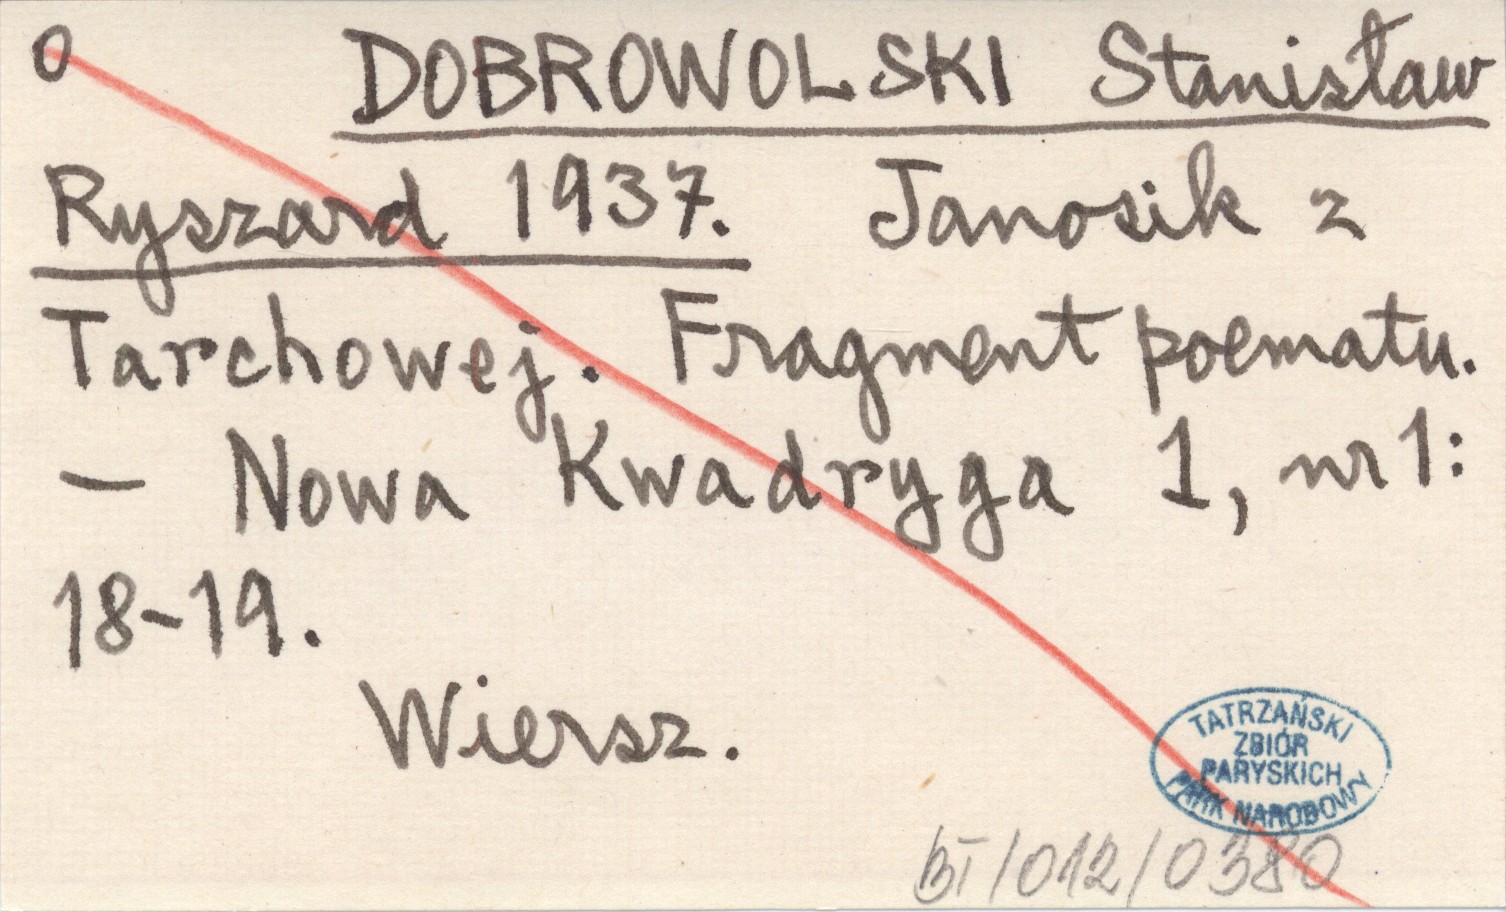 O DOBROWOLSKI Stanisław
Ryszard 1937. Janosik z
Tarchowej. Fragment poematu.
— Nowa Kwadryga 1, nr 1:
18-19.
Wiersz.
TATRZAŃSKI
ZBIÓR
PARYSKICH
PARK NARODOWY
BT/012/0380